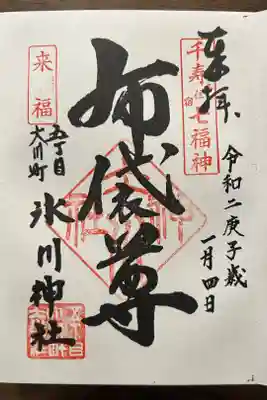 奉拝、
千寿七福神
令和二庚子歳
一月四日
布袋尊
来福
五丁目
大川町
氷川神社